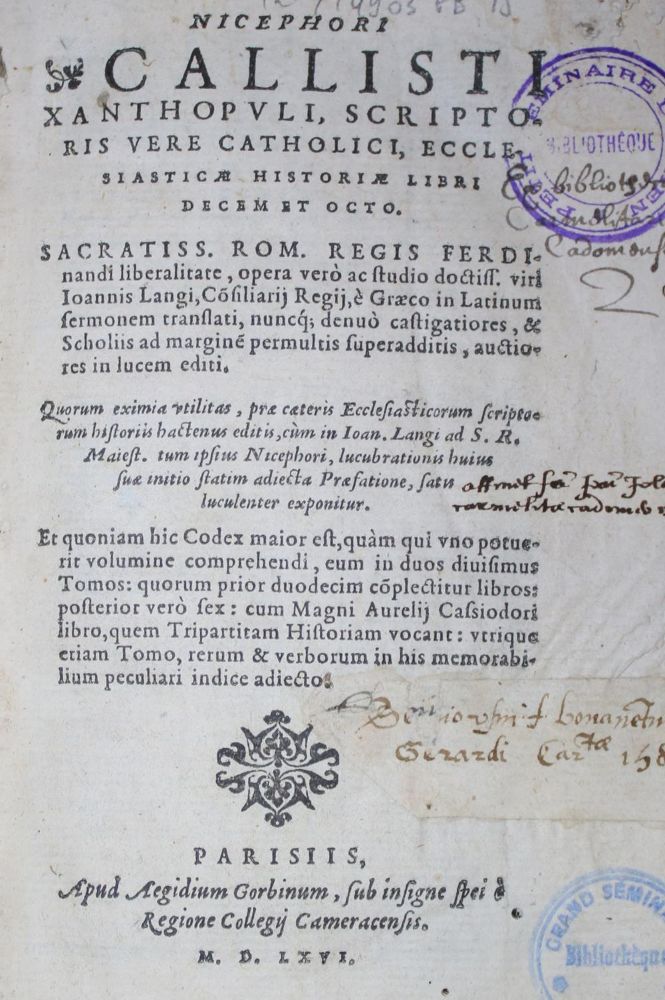 NICEPHORI
CALLISTI
XANTHOPVLI, SCRIPTO-
RIS VERE CATHOLICI, ECCLE-
SIASTICÆ HISTORIÆ LIBRI
DECEM ET OCTO.
SEMINAIRE
BIBLIOTHÈQUE
PETIT
bibliot
Carmelitar
Cadomens
SACRATISS. ROM. REGIS FERDI-
nandi liberalitate, opera verò ac studio doctiss. viri
Ioannis Langi, Cõsiliarij Regij, è Græco in Latinum
sermonem translati, nuncq́; denuò castigatiores, &
Scholiis ad marginẽ permultis superadditis, auctio-
res in lucem editi.
Quorum eximia vtilitas, præ cæteris Ecclesiasticorum scripto-
rum historiis hactenus editis, cùm in Ioan. Langi ad S. R.
Maiest. tum ipsius Nicephori, lucubrationis huius
suæ initio statim adiecta Præfatione, satis
luculenter exponitur.
carmelitæ cadomeus
Et quoniam hic Codex maior est, quàm qui vno potue-
rit volumine comprehendi, eum in duos diuisimus
Tomos: quorum prior duodecim cõplectitur libros:
posterior verò sex: cum Magni Aurelij Cassiodori
libro, quem Tripartitam Historiam vocant: vtrique
etiam Tomo, rerum & verborum in his memorabi-
lium peculiari indice adiecto.
Gerardi
PARISIIS,
Apud Aegidium Gorbinum, sub insigne spei è
Regione Collegij Cameracensis.
M. D. LXVI.
GRAND SÉMIN
Bibliothèque